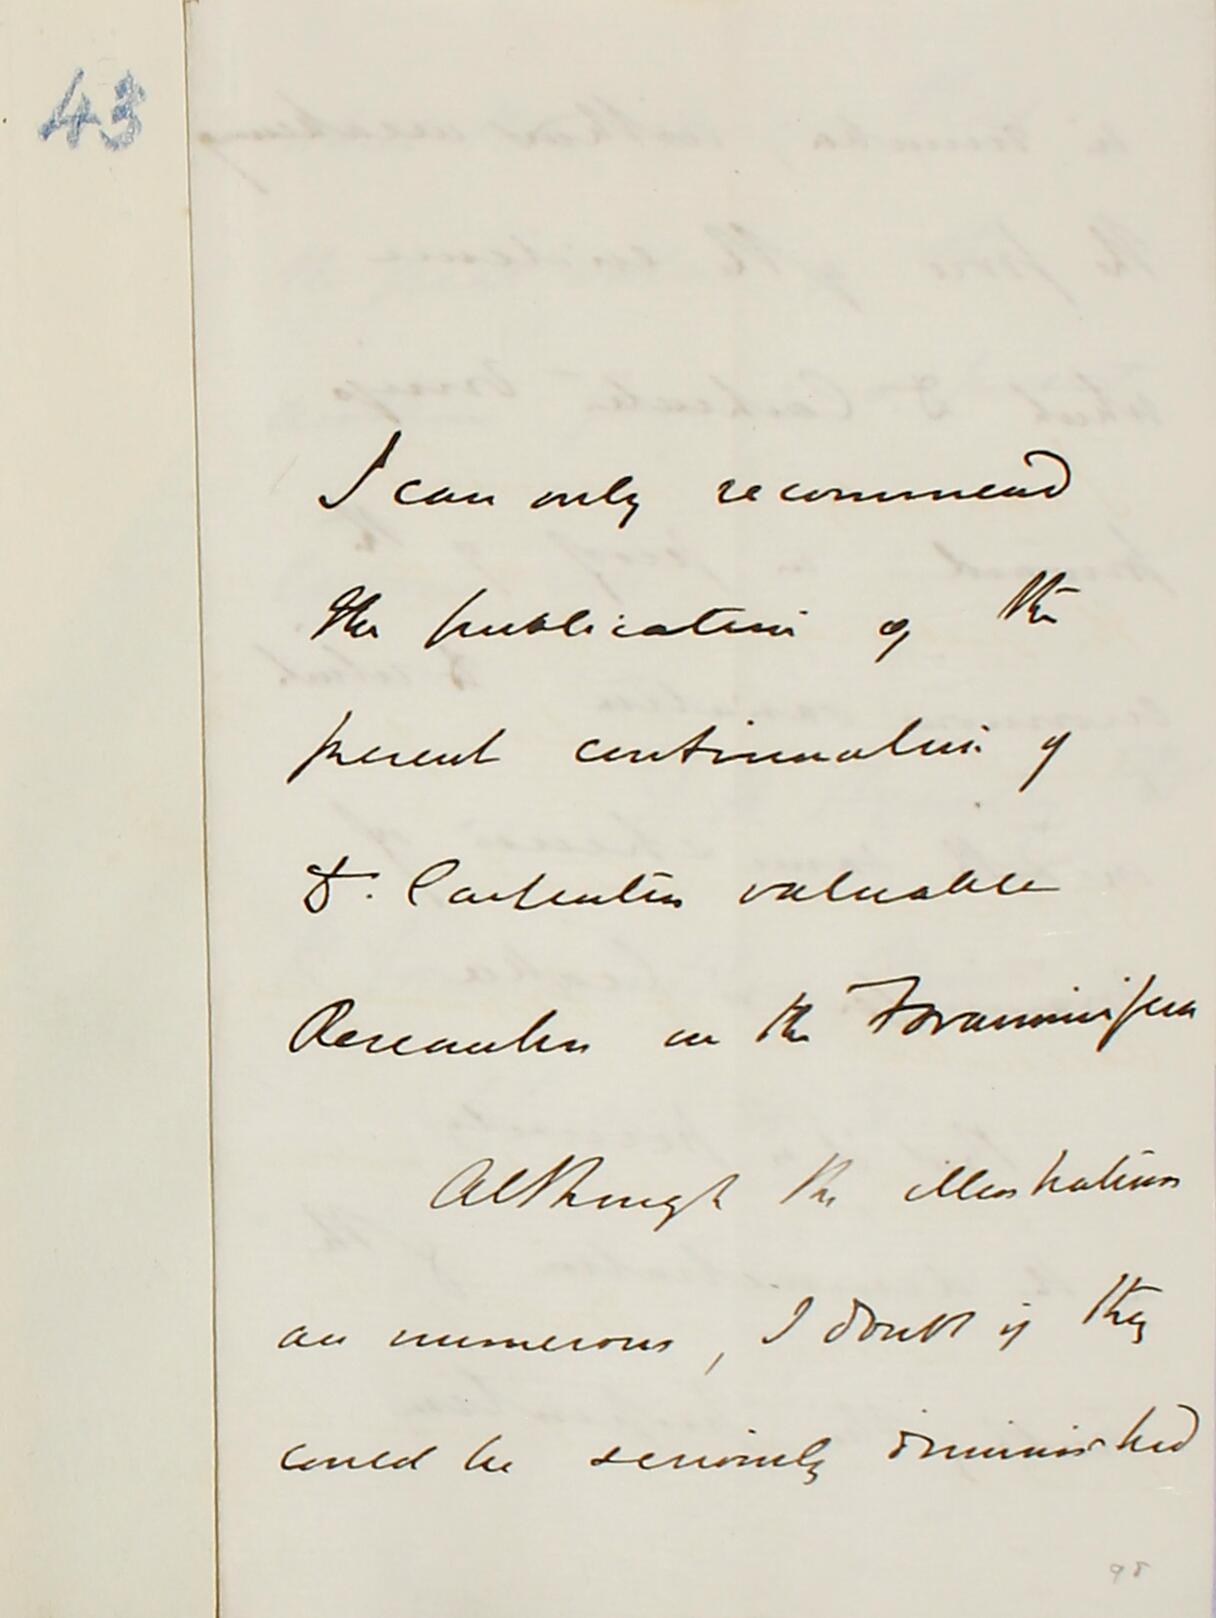 43
I can only recommend
the publication of the
present continuation of
Dr. Carpenters valuable
Researches on the Foraminifera
Although the illustrations
are numerous, I doubt if they
could be seriously diminished
98